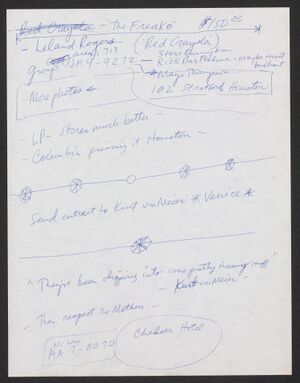 Red Crayola - The Freaks $150.00
Leland Rogers
area 713
group JA4-9272
Red Crayola
Steve Cunningham
Rick Barthelme - maybe most brilliant
Mayo Thompson
102 Stratford Houston
- More photos
- LP - Stereo much better -
- Columbia pressing it Houston -
Send contract to Kurt vonMeier * Venice *
"They've been digging into some pretty heavy stuff"
- Kurt vonMeier -
- They respect the Mothers -
HA 7-0070
Chelsea Hotel